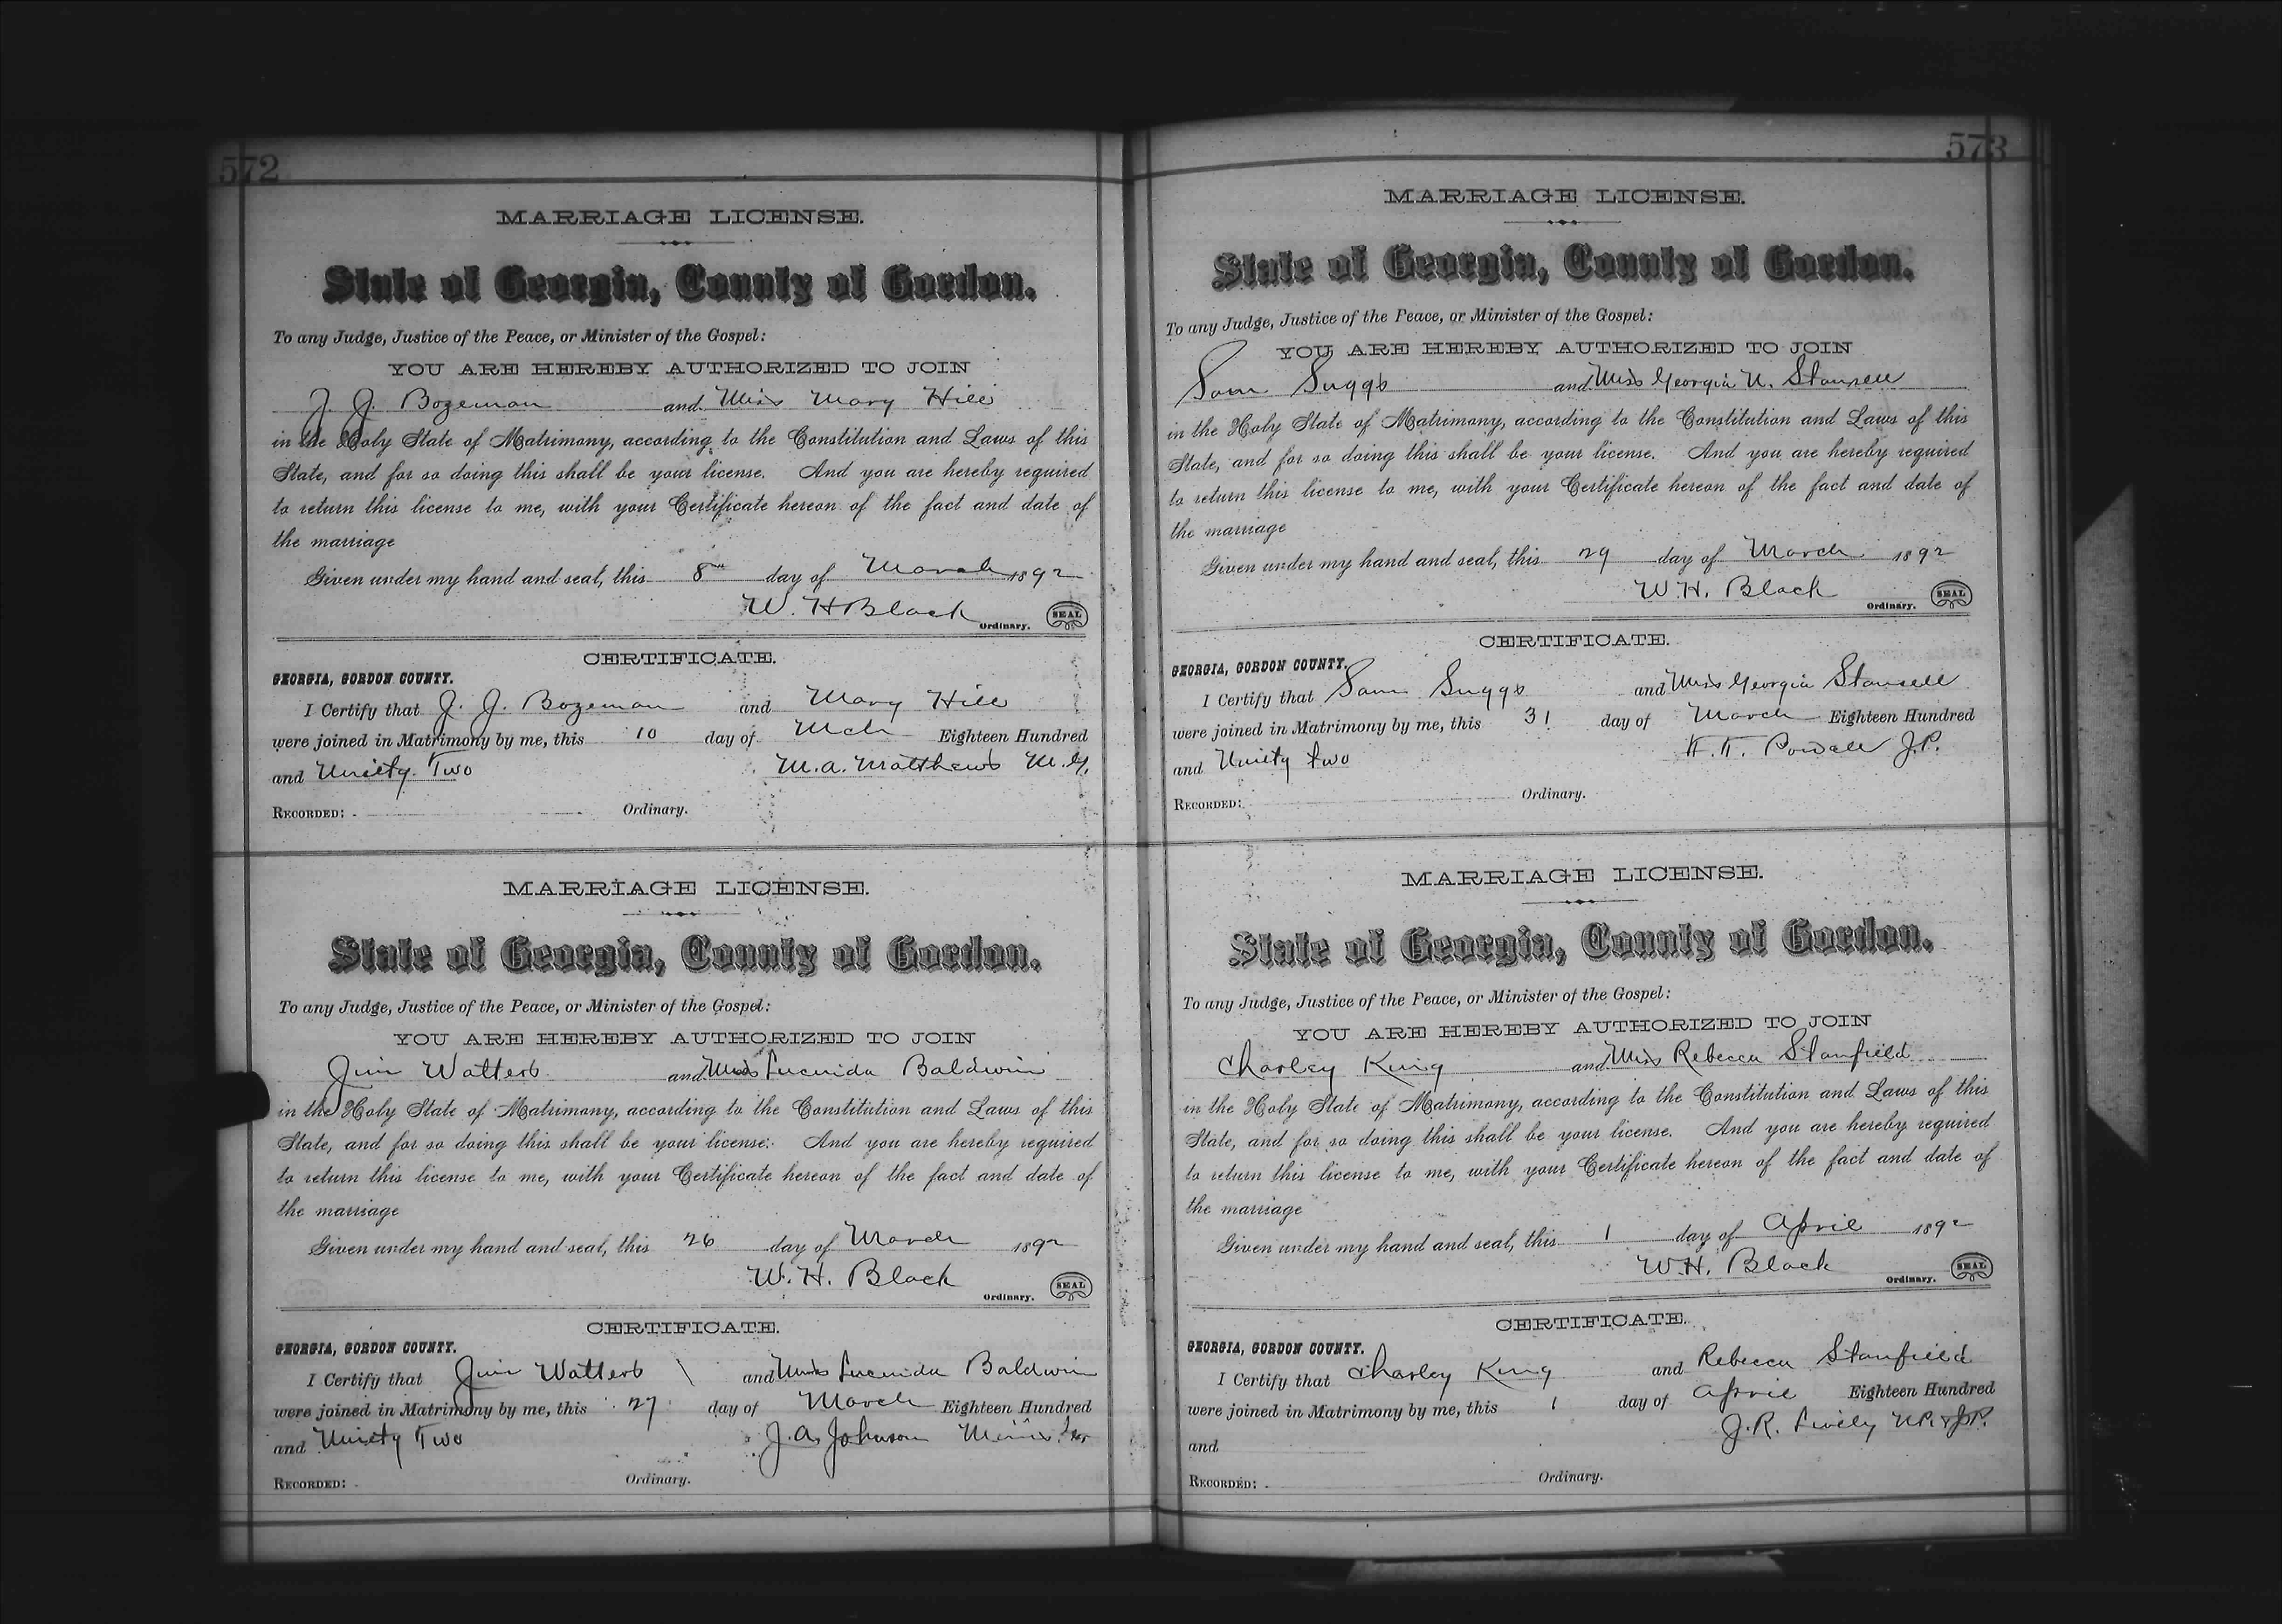 572
MARRIAGE LICENSE.
State of Georgia, County of Gordon.
To any Judge, Justice of the Peace, or Minister of the Gospel:
YOU ARE HEREBY AUTHORIZED TO JOIN
J. J. Bozeman and Miss Mary Hill
in the Holy State of Matrimony, according to the Constitution and Laws of this
State, and for so doing this shall be your license. And you are hereby required
to return this license to me, with your Certificate hereon of the fact and date of
the marriage
Given under my hand and seal, this 8th day of March 1892
W. H Black
Ordinary. SEAL
CERTIFICATE.
GEORGIA, GORDON COUNTY.
I Certify that J. J. Bozeman and Mary Hill
were joined in Matrimony by me, this 10 day of Mch Eighteen Hundred
and Ninety Two M. A. Matthews M.G.
RECORDED: Ordinary.
MARRIAGE LICENSE.
State of Georgia, County of Gordon.
To any Judge, Justice of the Peace, or Minister of the Gospel:
YOU ARE HEREBY AUTHORIZED TO JOIN
Jim Watters and Miss Lucinda Baldwin
in the Holy State of Matrimony, according to the Constitution and Laws of this
State, and for so doing this shall be your license. And you are hereby required
to return this license to me, with your Certificate hereon of the fact and date of
the marriage
Given under my hand and seal, this 26 day of March 1892
W. H. Black
Ordinary. SEAL
CERTIFICATE.
GEORGIA, GORDON COUNTY.
I Certify that Jim Watters and Miss Lucinda Baldwin
were joined in Matrimony by me, this 27 day of March Eighteen Hundred
and Ninety Two J. A. Johnson Minister
RECORDED: Ordinary.
573
MARRIAGE LICENSE.
State of Georgia, County of Gordon.
To any Judge, Justice of the Peace, or Minister of the Gospel:
YOU ARE HEREBY AUTHORIZED TO JOIN
Sam Suggs and Miss Georgia N. Stansell
in the Holy State of Matrimony, according to the Constitution and Laws of this
State, and for so doing this shall be your license. And you are hereby required
to return this license to me, with your Certificate hereon of the fact and date of
the marriage
Given under my hand and seal, this 29 day of March 1892
W. H. Black
Ordinary. SEAL
CERTIFICATE.
GEORGIA, GORDON COUNTY.
I Certify that Sam Suggs and Miss Georgia Stansell
were joined in Matrimony by me, this 31 day of March Eighteen Hundred
and Ninety two Powell J.P.
RECORDED: Ordinary.
MARRIAGE LICENSE.
State of Georgia, County of Gordon.
To any Judge, Justice of the Peace, or Minister of the Gospel:
YOU ARE HEREBY AUTHORIZED TO JOIN
Charley King and Miss Rebecca Stanfield
in the Holy State of Matrimony, according to the Constitution and Laws of this
State, and for so doing this shall be your license. And you are hereby required
to return this license to me, with your Certificate hereon of the fact and date of
the marriage
Given under my hand and seal, this 1 day of April 1892
W. H. Black
Ordinary. SEAL
CERTIFICATE.
GEORGIA, GORDON COUNTY.
I Certify that Charley King and Rebecca Stanfield
were joined in Matrimony by me, this 1 day of April Eighteen Hundred
and J. R. Lively N.P. & J.P.
RECORDED: Ordinary.